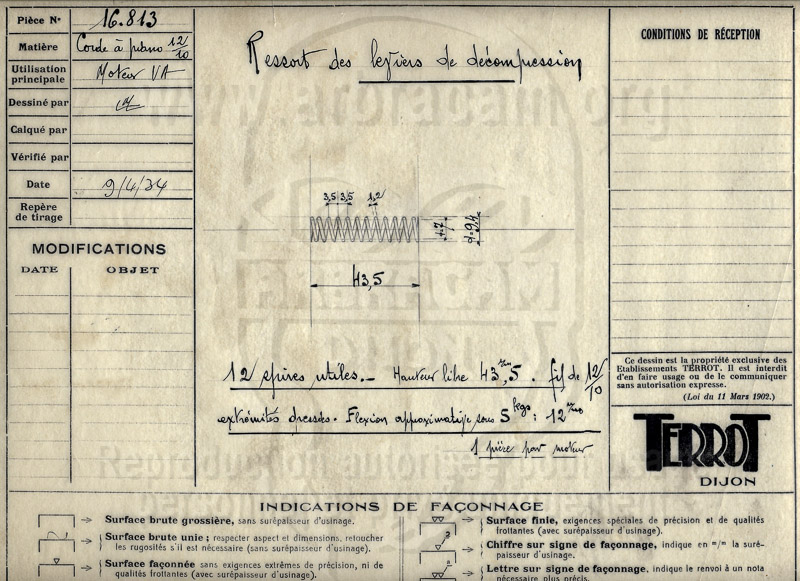 Pièce N° 16.813
Matière Corde à piano 12/10
Utilisation principale Moteur VA
Dessiné par
Calqué par
Vérifié par
Date 9/4/34
Repère de tirage
MODIFICATIONS
DATE OBJET
Ressort des leviers de décompression
3,5 3,5 1,2
7
d=9,4
43,5
12 spires utiles._ Hauteur libre 43mm,5. fil de 12/10
extrémités dressées. Flexion approximative sous 5 kgs: 12mm
1 pièce par moteur
CONDITIONS DE RÉCEPTION
Ce dessin est la propriété exclusive des
Etablissements TERROT. Il est interdit
d'en faire usage ou de le communiquer
sans autorisation expresse.
(Loi du 11 Mars 1902.)
TERROT
DIJON
INDICATIONS DE FAÇONNAGE
Surface brute grossière, sans surépaisseur d'usinage.
Surface brute unie; respecter aspect et dimensions, retoucher
les rugosités s'il est nécessaire (sans surépaisseur d'usinage).
Surface façonnée sans exigences extrêmes de précision, ni de
qualités frottantes (avec surépaisseur d'usinage).
Surface finie, exigences spéciales de précision et de qualités
frottantes (avec surépaisseur d'usinage).
Chiffre sur signe de façonnage, indique en m/m la suré-
paisseur d'usinage.
Lettre sur signe de façonnage, indique le renvoi à un nota
nécessaire plus précis.